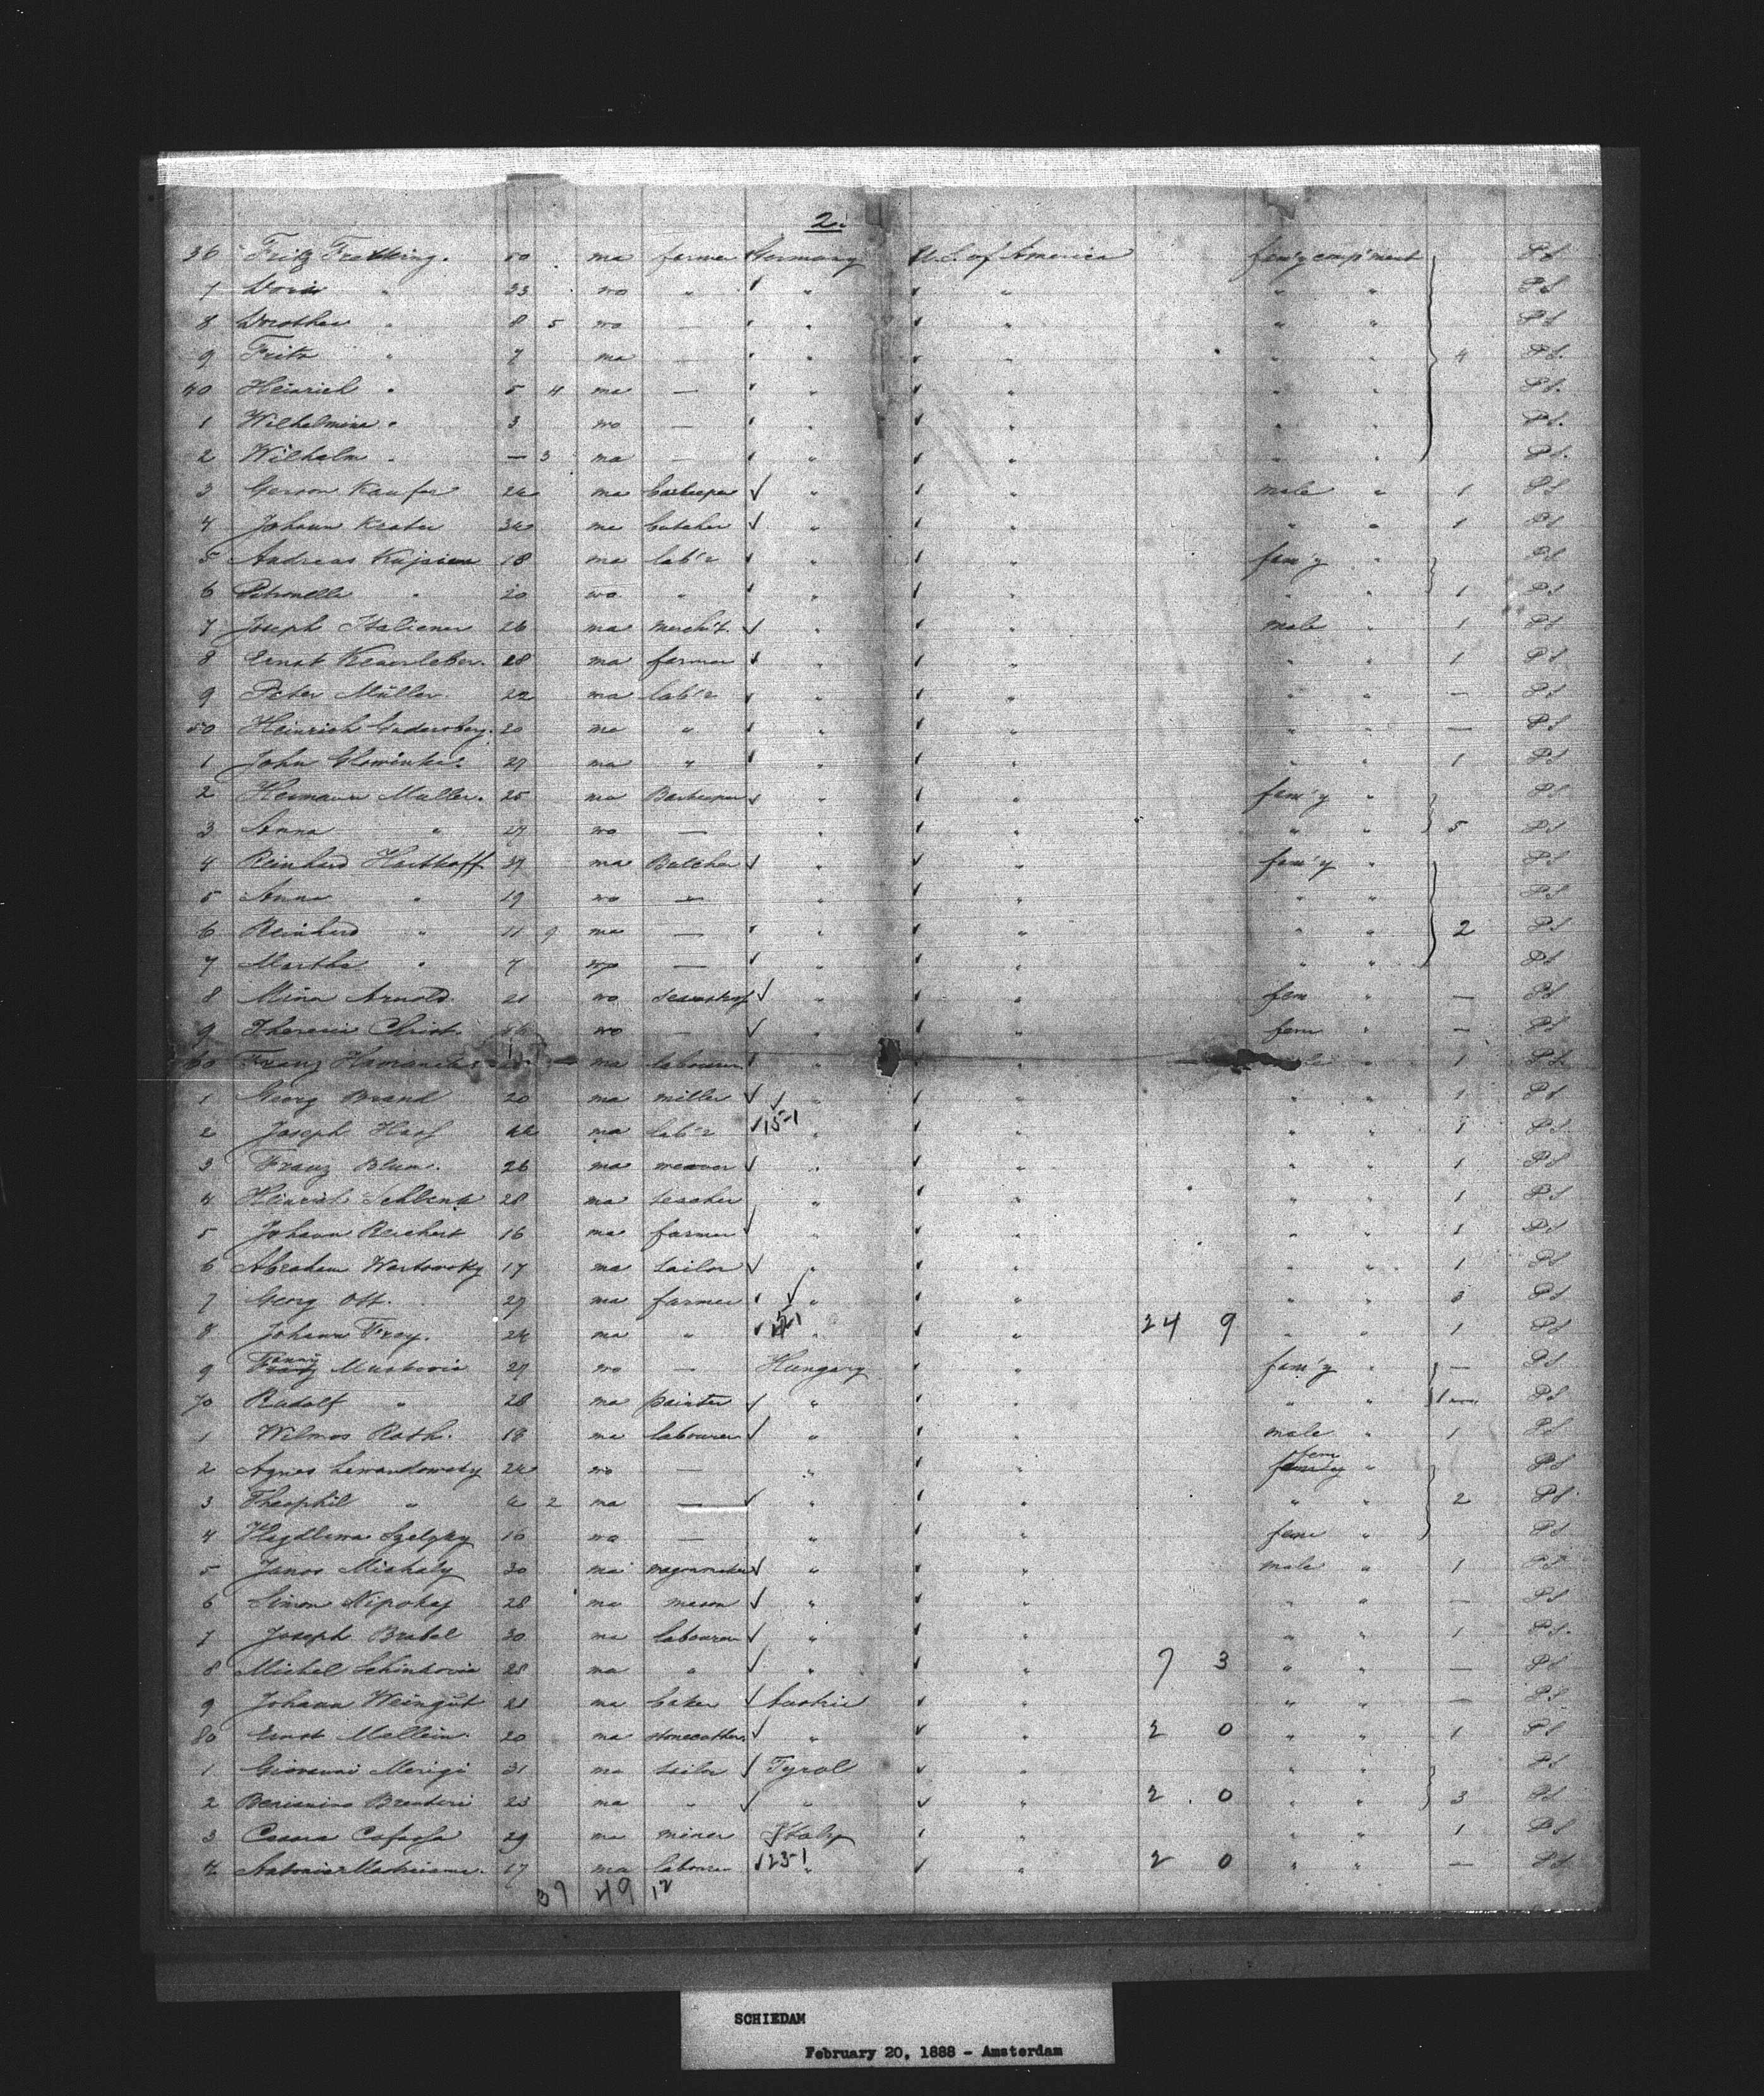 2.
36 Fritz Fratking. 50 ma farmer Germany U.S. of America fam'y comp'ment P S
7 Doris " 33 wo " " " " " P S
8 Dorothea " 8 5 wo — " " " " P S
9 Fritz " 7 ma — " " " " 4 P S.
40 Heinrich " 5 4 ma — " " " " P S.
1 Wilhelmine " 3 wo — " " " " P S.
2 Wilhelm " — 3 ma — " " " " P S.
3 Gerson 24 ma " " male " 1 P S
4 Johann Krater ma butcher " " " " 1 P S
5 Andreas 18 ma lab'r " " fam'y " P S
6 Petronella " 20 wo " " " " " 1 P S
7 Joseph Italiener 26 ma merch't. " " male " 1 P S
8 Ernst 28 ma farmer " " " " 1 P S
9 Peter Müller 22 ma lab'r " " " " — P S
50 Heinrich 20 ma " " " " " — P S
1 John 27 ma " " " " " 1 P S
2 Hermann Muller. 25 ma " " fam'y " P S
3 Anna " 27 wo — " " " " 5 P S
4 Reinhard Harthoff 37 ma Butcher " " fam'y " P S
5 Anna " 19 wo — " " " " P S
6 Reinhard " 11 9 ma — " " " " 2 P S
7 Martha " 7 wo — " " " " P S
8 Mina Arnold. 21 wo " " fem " — P S
9 Christ. wo — " " fem " — P S
60 Franz ma labourer " " " 1 P S.
1 Georg Brand 20 ma miller " " " " 1 P S
2 Joseph Haaf ma lab'r 15-1 " " " " 1 P S
3 Franz Blum. 26 ma weaver " " " " 1 P S
4 Heinrich Schlenk 28 ma teacher " " " " 1 P S
5 Johann Reichert 16 ma farmer " " " " 1 P S
6 Abraham Wartowsky 17 ma tailor " " " " 1 P S
7 Georg Ott. 27 ma farmer " " " " 3 P S
8 Johann Frey. 24 ma " " " 24 9 " " 1 P S
9 Fanny Muskovic 27 wo — Hungary " fam'y " — P S
70 Rudolf " 28 ma painter " " " " 1 P S
1 Wilmos Roth. 18 ma labourer " " male " 1 P S
2 Agnes Lewandowsky 24 wo — " " fem " P S
3 Theophil " 4 2 ma — " " " " 2 P S
4 16 wo — " " fem " P S
5 Janos Miahaly 30 ma wagonmaker " " male " 1 P S
6 Simon 28 ma mason " " " " — P S
7 Joseph Brabel 30 ma labourer " " " " 1 P S.
8 Michel Schinkovic 28 ma " " " 7 3 " " — P S
9 Johann Weingut 21 ma baker Austria " " " — P S
80 Ernst Mellein. 20 ma stonecutter " " 2 0 " " 1 P S
1 Giovanni Merigi 31 ma tailor Tyrol " " " P S
2 23 ma " " " 2 0 " " 3 P S
3 29 ma miner Italy " " " 1 P S
4 Antonio 17 ma labourer 23-1 " " 2 0 " " — P S
37 49 12
SCHIEDAM
February 20, 1888 - Amsterdam